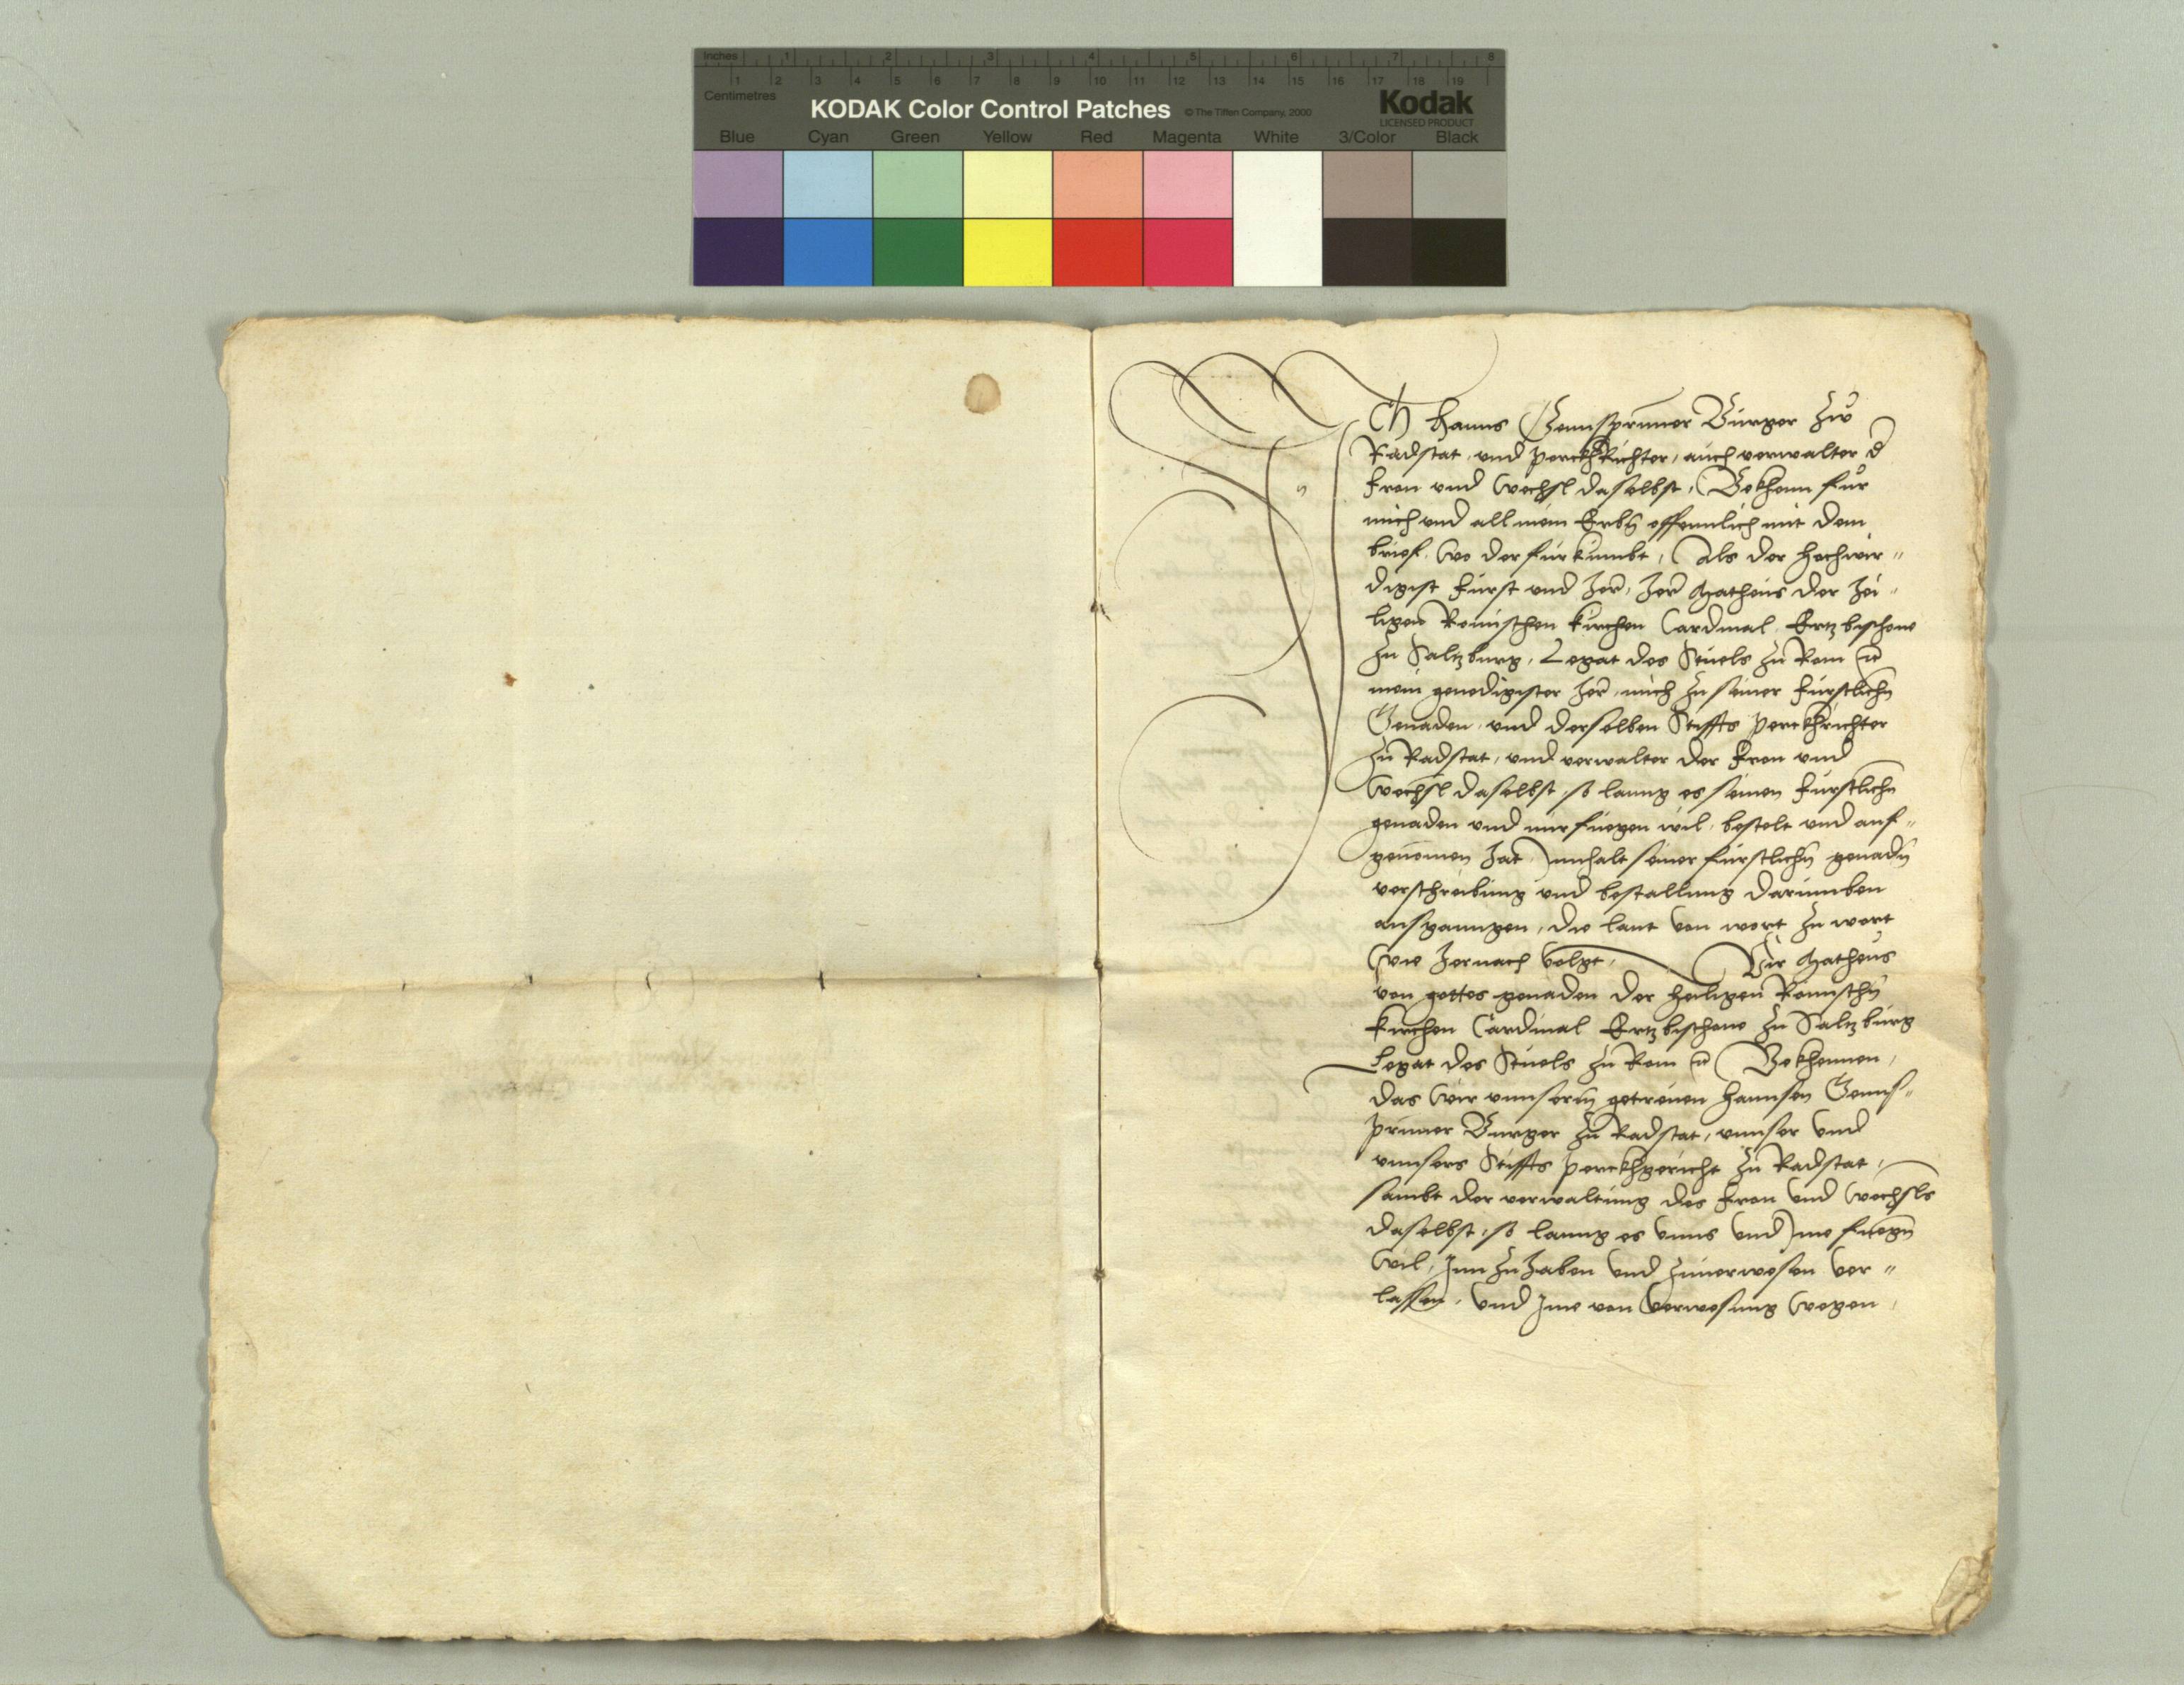 Inches 1 2 3 4 5 6 7 8
1 2 3 4 5 6 7 8 9 10 11 12 13 14 15 16 17 18 19
Centimetres
KODAK Color Control Patches © The Tiffen Company, 2000 Kodak
LICENSED PRODUCT
Blue Cyan Green Yellow Red Magenta White 3/Color Black
Ich Hanns Gennsprunner Burger zu
Radstat, und Perckhrichter, auch verwalter d
Fron und Wechsl daselbst, Bekhenn fur
mich und all mein Erbn offennlich mit dem
brief, wo der furkumbt, Als der Hochwir„
digist Furst und Herr, Herr Matheus der Hei„
ligen Romischen kirchen Cardinal Ertzbischove
zu Saltzburg, Legat des Stuels zu Rom
mein genedigister Herr, mich zu seiner Furstlichn
Genaden, und derselben Stiffts Perckhrichter
zu Radstat, und verwalter der Fron und
Wechsl daselbst, so lanng es seinen Furstlichn
genaden und mir fuegen wil, bestelt und auf„
genomen hat, Innhalt seiner furstlichn genadn
verschreibung und bestallung darumben
ausganngen, die laut von wort zu wort
wie hernach volgt, Wir Matheus
von gottes genaden der heiligen Romischn
kirchen Cardinal Ertzbischove zu Saltzburg
Legat des Stuels zu Rom Bekhennen,
das wir unnserm getreuen Hannsen Genns„
prunner Burger zu Radstat, unnser und
unnsers Stiffts Perckhgericht zu Radstat,
sambt der verwaltung des Fron und Wechsls
daselbst, so lanng es unns und Ime fuegn
wil, Inn zu haben und zuuerwesen ver„
lassen, und Ime von verwesung wegen,